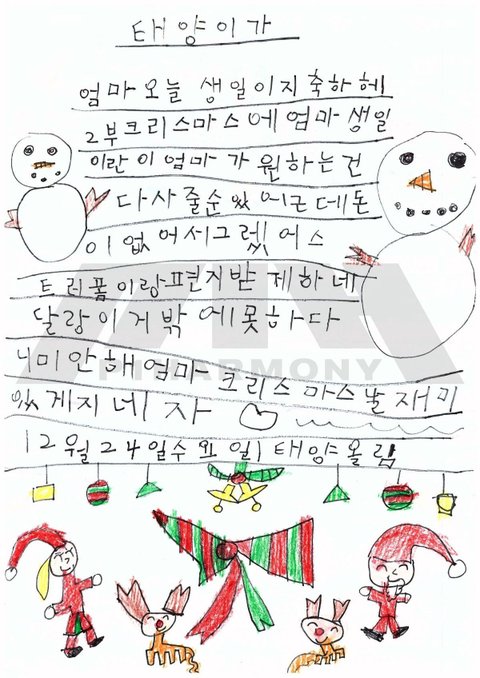 태양이가
엄마오늘 생일이지축하헤
2부크리스마스에엄마생일
이란이엄마가원하는건
다사줄순있에근데돈
이없어서그렜에스
트리폼이랑편지밖제하네
달랑이거밖에못하다
니미안해엄마크리스마스날재미
있게지네자
12월24일수요일 태양올림
HARMONY